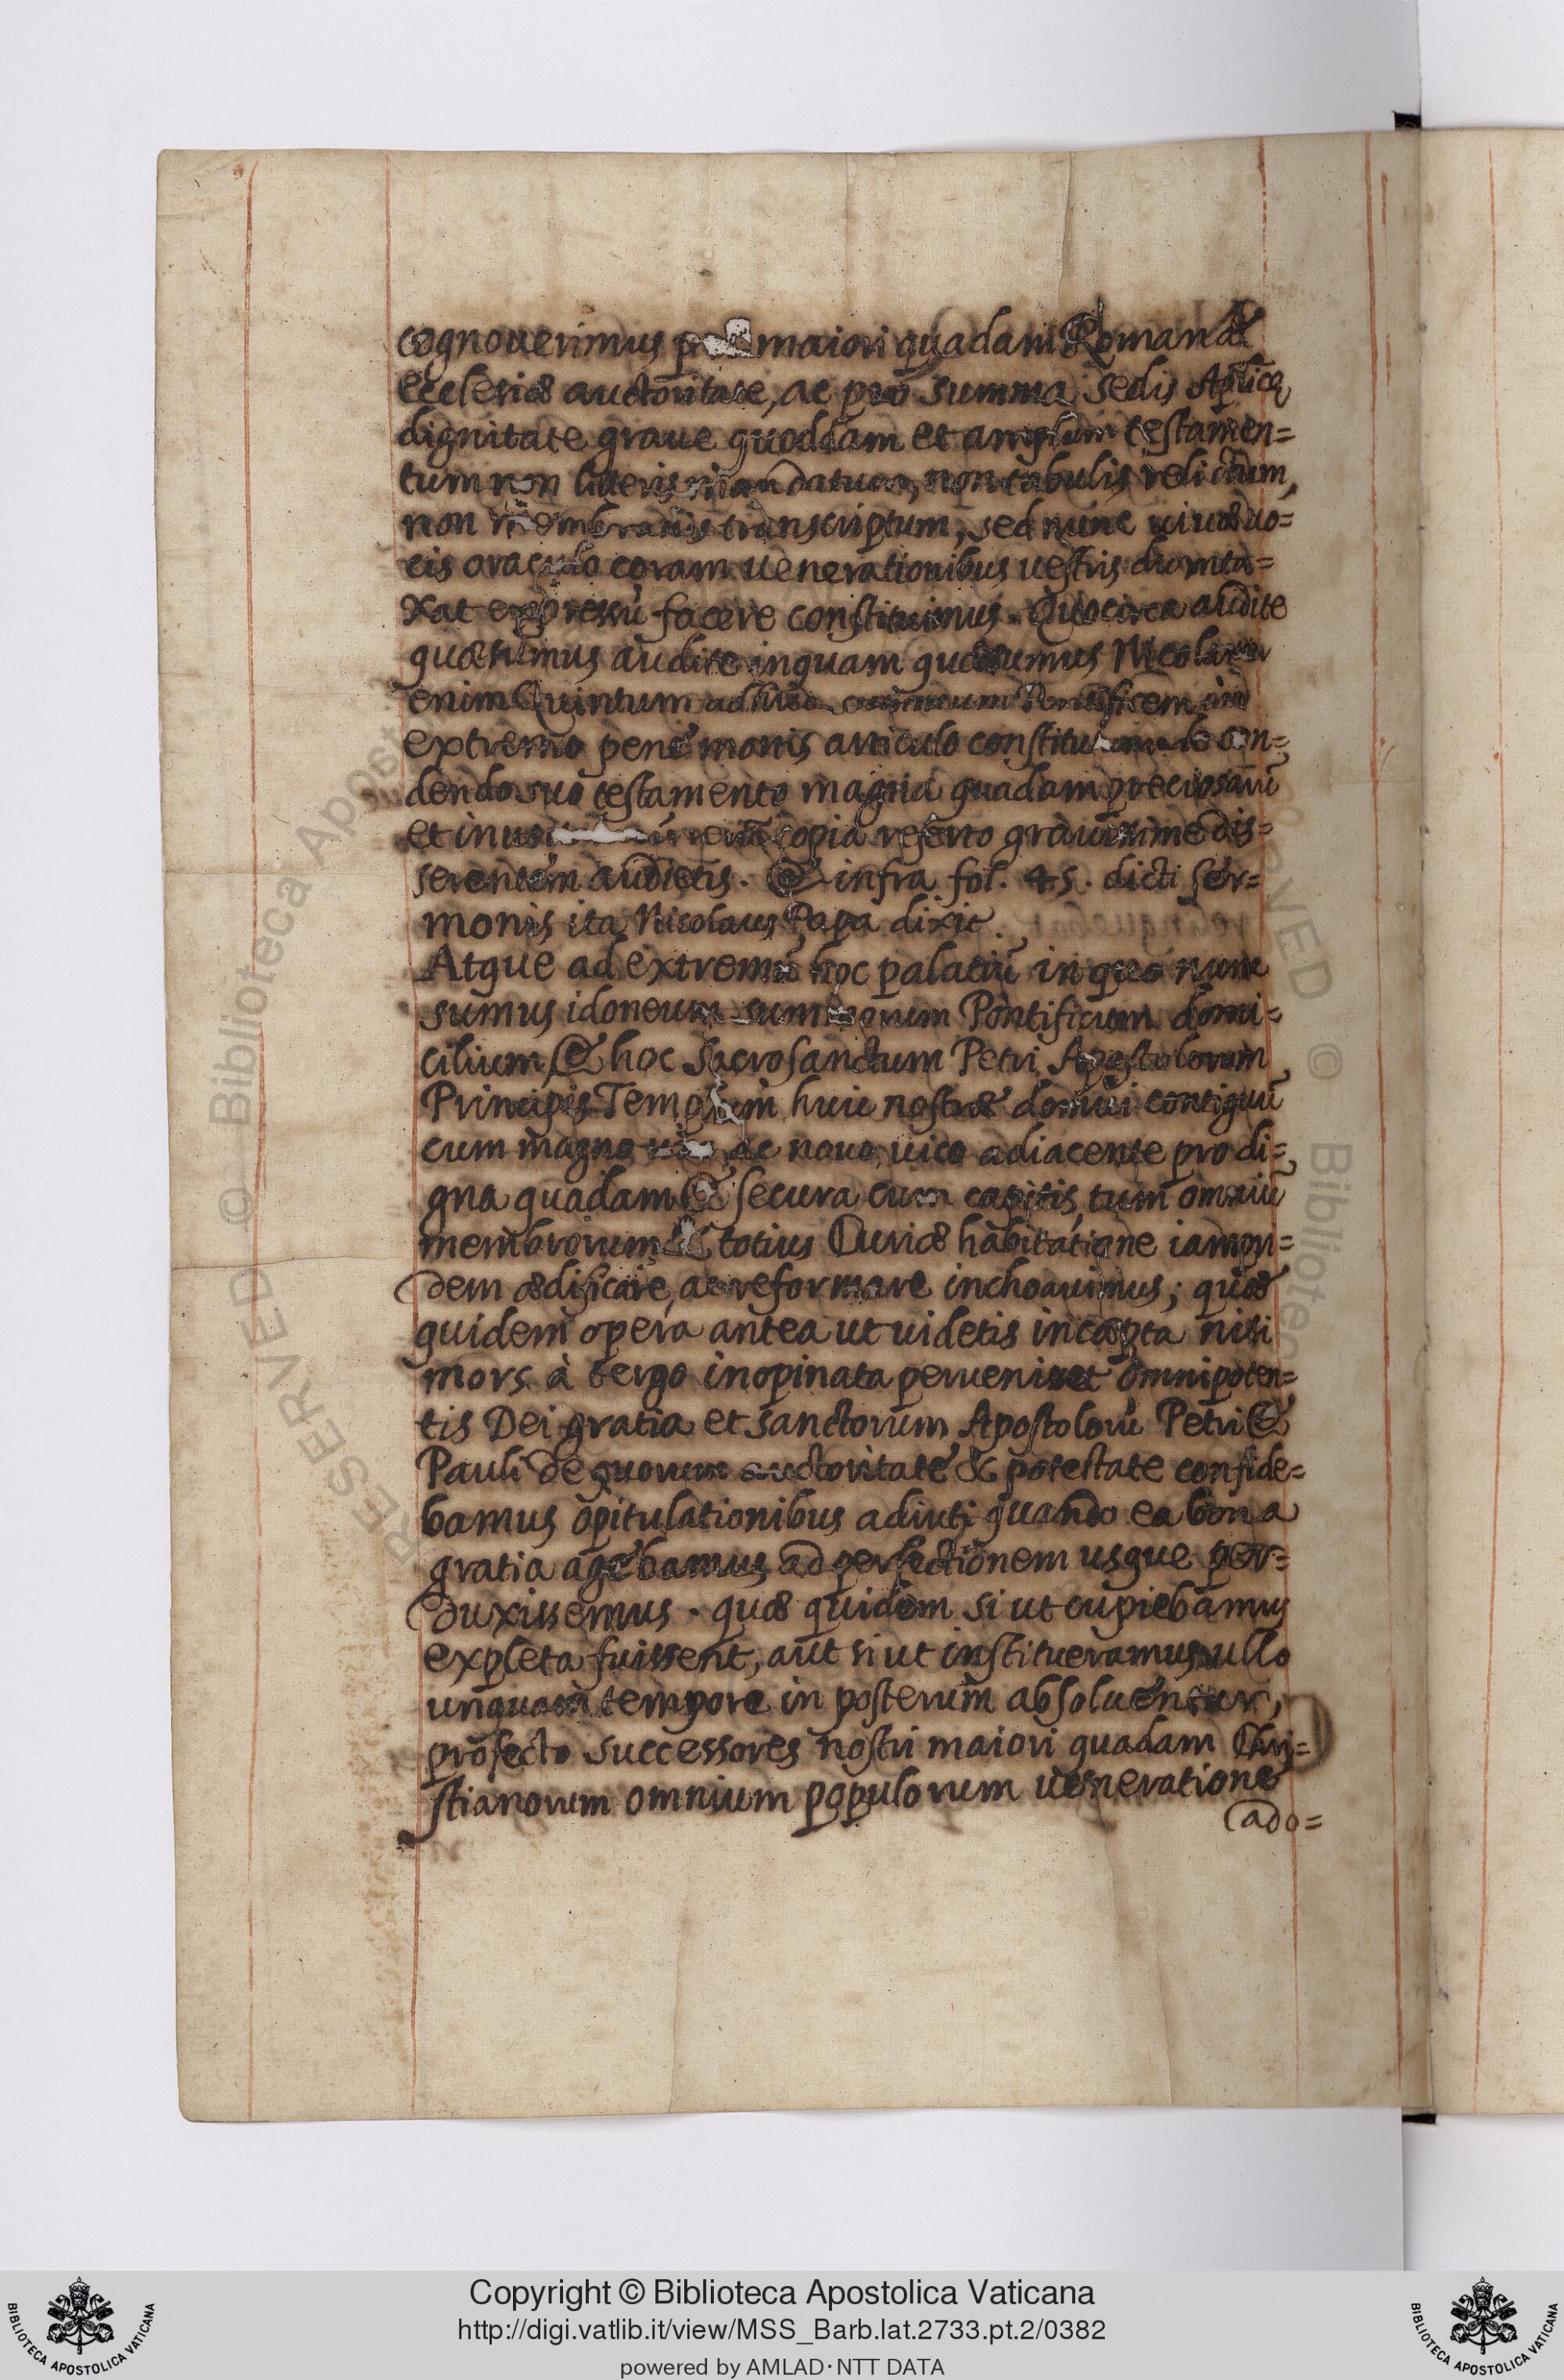 cognouerimus maiori quadam Romanæ
Ecclesiæ auctoritate, ac pro summa Sedis Aplicæ
dignitate graue quoddam et amplum testamen=
tum non litteris mandatum, non tabulis relictum,
non membranis transcriptum, sed nunc uiuæ uo=
cis oraculo coram uenerationibus uestris dumta=
xat expressū facere constituimus. Quocirca audite
quæsumus audite inquam quæsumus Nicolaum
enim Quintum adhuc Pontificem in
extremo pene mortis articulo constitutum de con=
dendo suo testamento magna quadam preciosarū
et copia referto grauissime dis=
serentem audietis. & infra fol. 45. dicti Ser=
monis ita Nicolaus Papa dixit.
Atque ad extremū hoc palatiū in quo nunc
sumus idoneum summorum Pontificum domi=
cilium, & hoc Sacrosanctum Petri Apostolorum
Principis Templum huic nostræ domui contiguū
cum magno ac nouo uico adiacente pro di=
gna quadam & secura cum capitis, tum omniū
membrorum & totius Curiæ habitatione iampri=
dem ædificare, ac reformare inchoauimus; quæ
quidem opera antea ut uidetis incæpta nisi
mors à tergo inopinata perueniret omnipoten=
tis Dei gratia et sanctorum Apostolorū Petri &
Pauli de quorum auctoritate & potestate confide=
bamus opitulationibus adiuti quando ea bona
gratia agebamus ad perfectionem usque per=
duxissemus. quæ quidem si ut cupiebamus
expleta fuissent, aut si ut institueramus ullo
unquam tempore in posterum absoluentur,
profecto successores nostri maiori quadam Chri=
stianorum omnium populorum ueneratione
ado=
RESERVED © Biblioteca Apost
RESERVED © Biblioteca
Copyright © Biblioteca Apostolica Vaticana
http://digi.vatlib.it/view/MSS_Barb.lat.2733.pt.2/0382
powered by AMLAD·NTT DATA
BIBLIOTECA APOSTOLICA VATICANA
BIBLIOTECA APOSTOLICA VATICANA